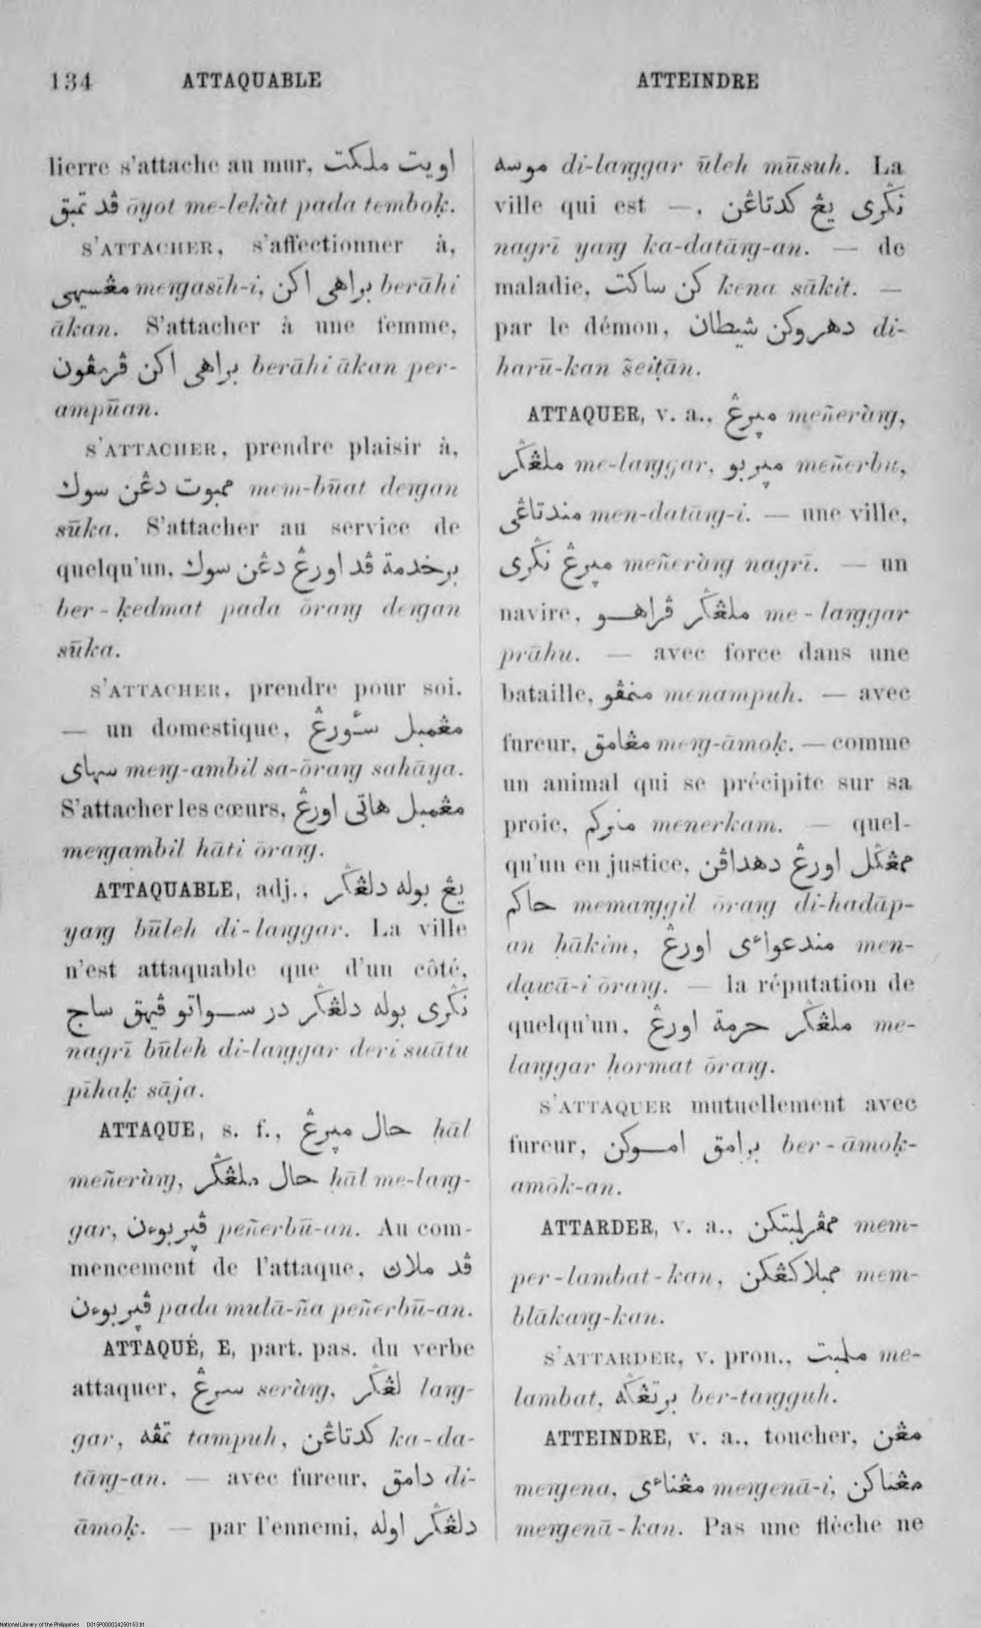 134 ATTAQUABLE ATTEINDRE
lierre s'attache au mur, اويت ملكت
ڤد تمبق ōyot me-lekàt pada temboḳ.
S'ATTACHER, s'affectionner à,
مڠسيهى meṅgasih-i, براهى اكن berāhi
ākan. S'attacher à une femme,
براهى اكن ڤرمڤون berāhi ākan per-
ampūan.
S'ATTACHER, prendre plaisir à,
ممبوت دڠن سوك mem-būat deṅgan
sūka. S'attacher au service de
quelqu'un, برخدمة ڤد اورڠ دڠن سوك
ber-ḳedmat pada ōraṅg deṅgan
sūka.
S'ATTACHER, prendre pour soi.
— un domestique, مڠمبل سٔورڠ
سهاى meṅg-ambil sa-ōraṅg sahāya.
S'attacher les cœurs, مڠمبل هاتى اورڠ
meṅgambil hāti ōraṅg.
ATTAQUABLE, adj., يڠ بوله دلڠݢر
yaṅg būleh di-laṅggar. La ville
n'est attaquable que d'un côté,
نݢرى بوله دلڠݢر در سواتو ڤيهق ساج
nagrī būleh di-laṅggar deri suātu
pīhaḳ sāja.
ATTAQUE, s. f., حال مڽرڠ hāl
meñeràṅg, حال ملڠݢر hāl me-laṅg-
gar, ڤڽربوءن peñerbū-an. Au com-
mencement de l'attaque, ڤد ملاڽ
ڤڽربوءن pada mulā-ña peñerbū-an.
ATTAQUÉ, E, part. pas. du verbe
attaquer, سرڠ seràṅg, لڠݢر laṅg-
gar, تمڤه tampuh, كدتاڠن ka-da-
tāṅg-an. — avec fureur, دامق di-
āmoḳ. — par l'ennemi, دلڠݢر اوله
موسه di-laṅggar ūleh mūsuh. La
ville qui est —, نݢرى يڠ كدتاڠن
nagrī yaṅg ka-datāṅg-an. — de
maladie, كن ساكت kena sākit. —
par le démon, دهروكن شيطان di-
harū-kan šeiṭān.
ATTAQUER, v. a., مڽرڠ meñeràṅg,
ملڠݢر me-laṅggar, مڽربو meñerbu,
مندتاڠى men-datāṅg-i. — une ville,
مڽرڠ نݢرى meñeràṅg nagrī. — un
navire, ملڠݢر ڤراهو me-laṅggar
prāhu. — avec force dans une
bataille, منمڤو menampuh. — avec
fureur, مڠامق meṅg-āmoḳ. — comme
un animal qui se précipite sur sa
proie, منركم menerkam. — quel-
qu'un en justice, ممڠݢل اورڠ دهداڤن
حاكم memaṅggil ōraṅg di-hadāp-
an ḥākim, مندعواءى اورڠ men-
dạwā-i ōraṅg. — la réputation de
quelqu'un, ملڠݢر حرمة اورڠ me-
laṅggar ḥormat ōraṅg.
S'ATTAQUER mutuellement avec
fureur, برامق اموكن ber-āmoḳ-
amōk-an.
ATTARDER, v. a., ممڤرلمبتكن mem-
per-lambat-kan, ممبلاكڠكن mem-
blākaṅg-kan.
S'ATTARDER, v. pron., ملمبت me-
lambat, برتڠݢه ber-taṅgguh.
ATTEINDRE, v. a., toucher, مڠن
meṅgena, مڠناءى meṅgenā-i, مڠناكن
meṅgenā-kan. Pas une flèche ne
National Library of the Philippines